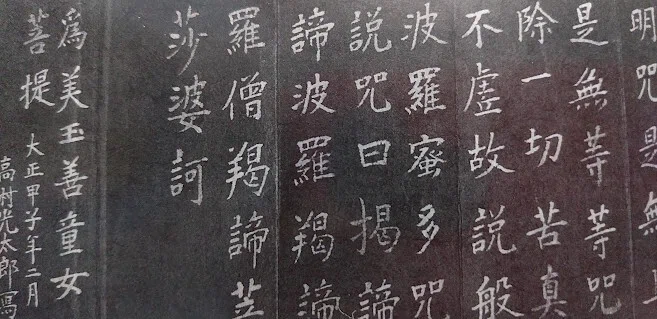 明咒是無上
是無等等咒
除一切苦真
不虛故說般
波羅蜜多咒
説咒曰揭諦
諦波羅羯諦
羅僧羯諦菩
莎婆訶
為美玉善童女
菩提
大正甲子年二月
高村光太郎寫